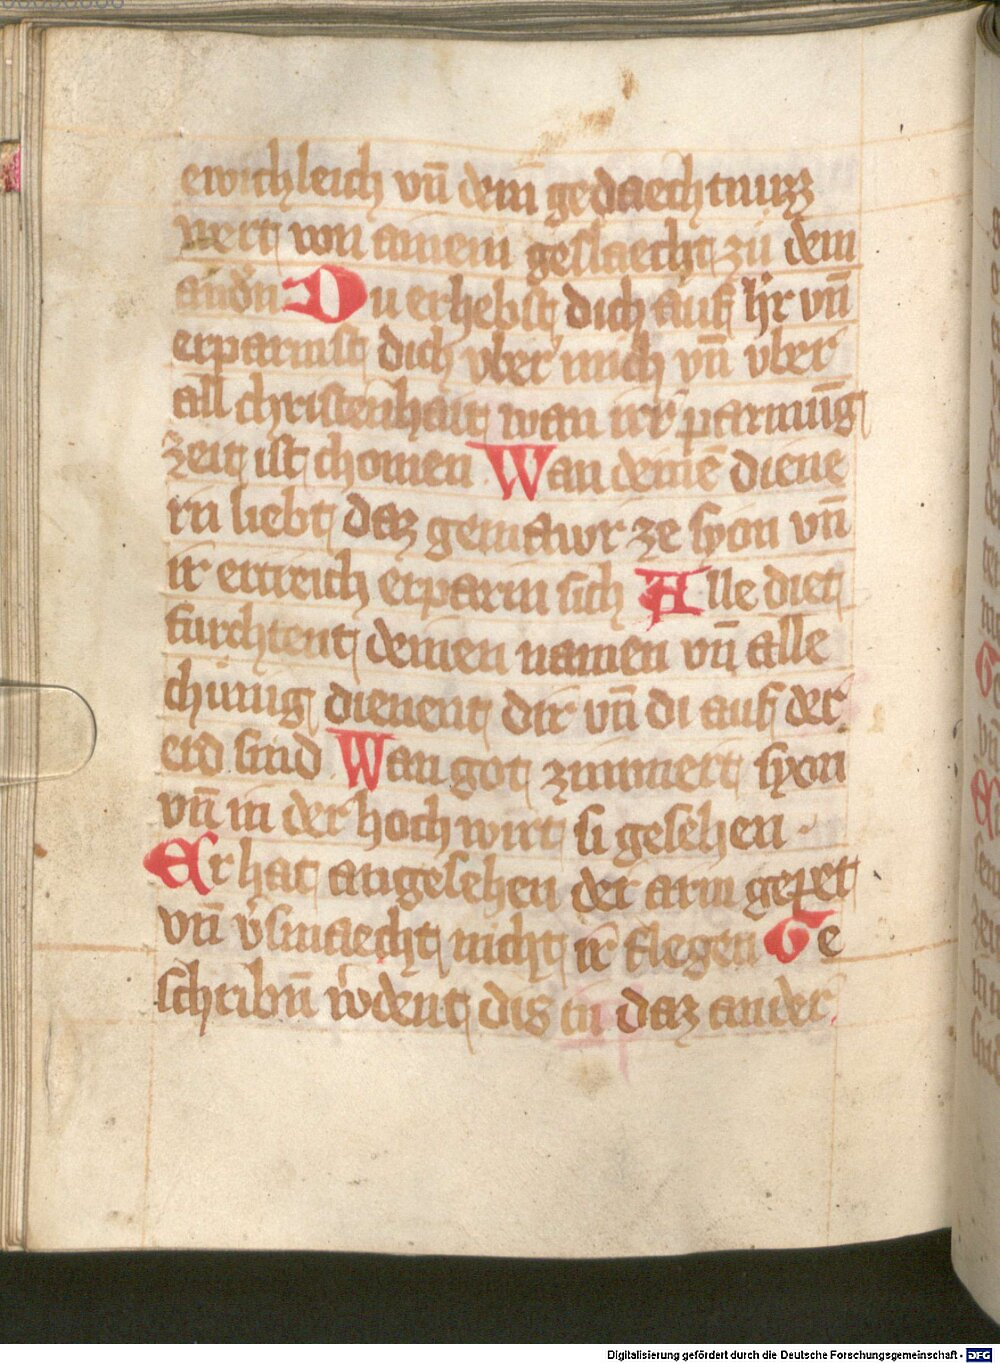 ewichleich vn̄ dein̄ gedaechtnuzz
wert von ainem geslaecht zu dem
andn̄ Du erhebst dich auf h̄r vn̄
erparmst dich vber mich vn̄ vber
all christenhait wan irr parmūg
zeit ist chomen Wan deinē diene
rn liebt daz gemawr ze syon vn̄
ir ertreich erparm sich Alle diet
furchtent deinen namen vn̄ alle
chunig dienent dir vn̄ di auf der
erd sind Wan got zimmert syon
vn̄ in der hoch wirt si gesehen
Er hat angesehen der arm gepet
vn̄ v̾smaecht nicht ir flegen Ge
schribn̄ w̾dent dis in daz ander
Digitalisierung gefördert durch die Deutsche Forschungsgemeinschaft - DFG